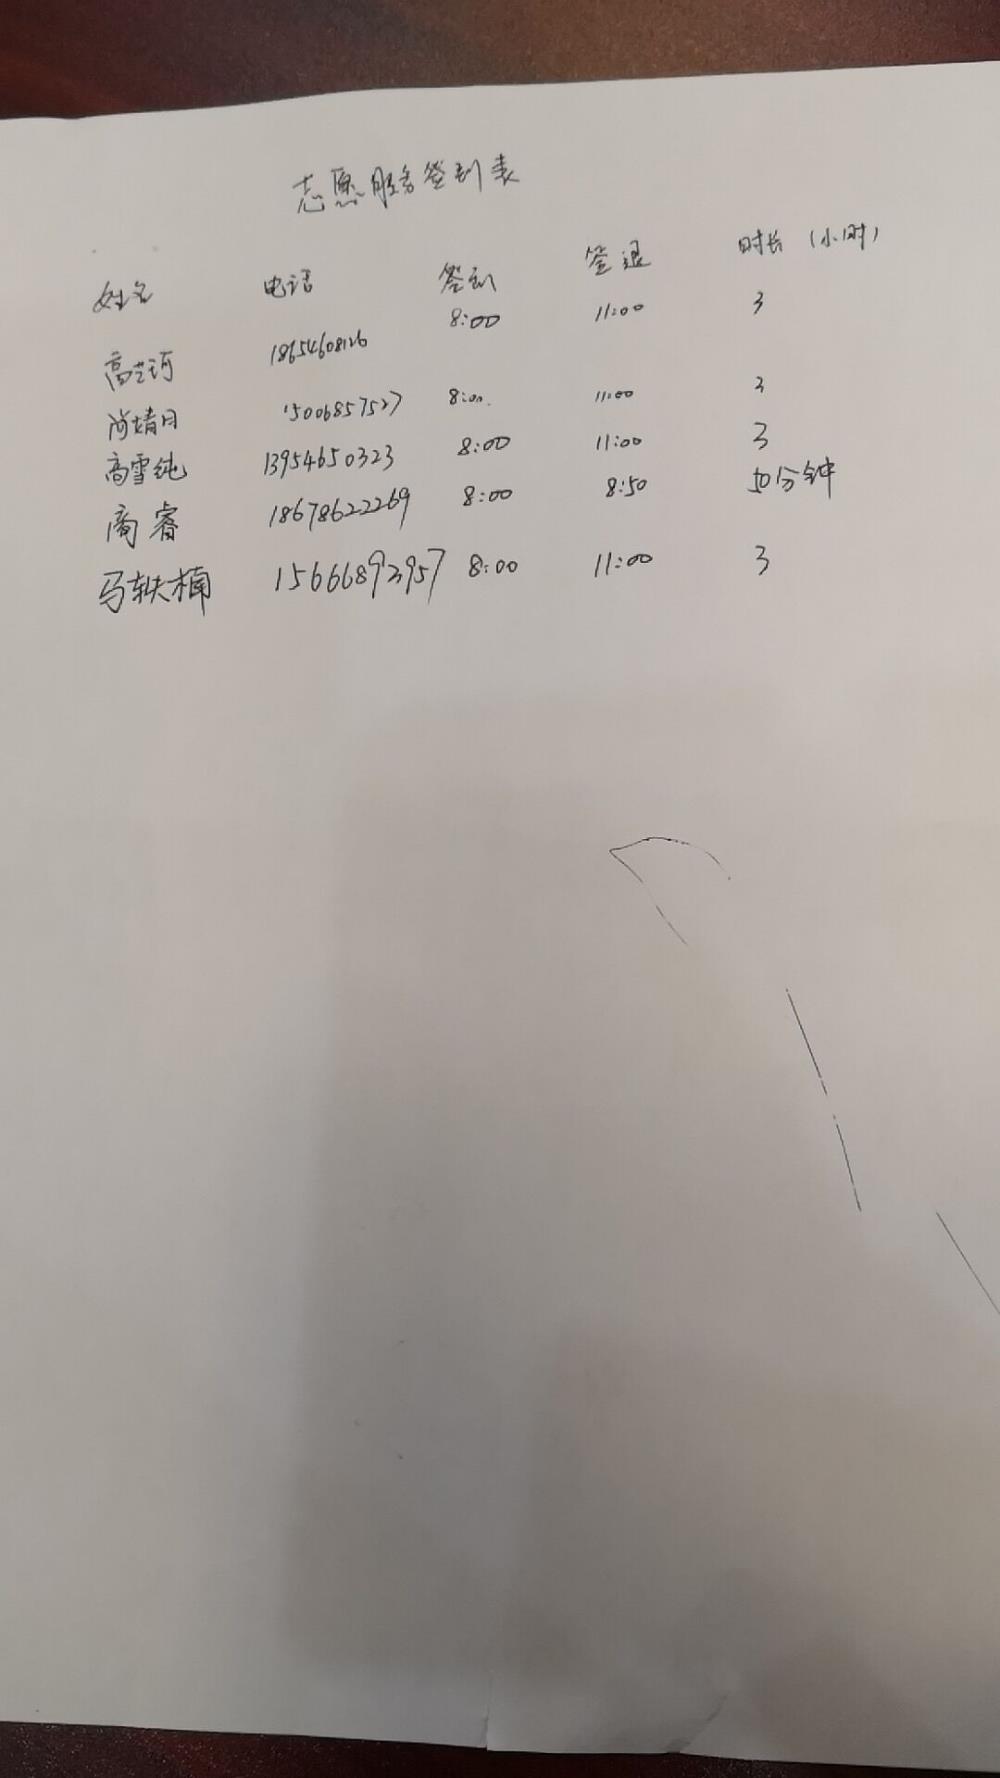 志愿服务签到表
姓名 电话 签到 签退 时长（小时）
高艺珂 18654608126 8:00 11:00 3
尚婧月 15006857527 8:00 11:00 3
高雪纯 13954650323 8:00 11:00 3
商睿 18678622269 8:00 8:50 50分钟
马轶楠 15666893957 8:00 11:00 3